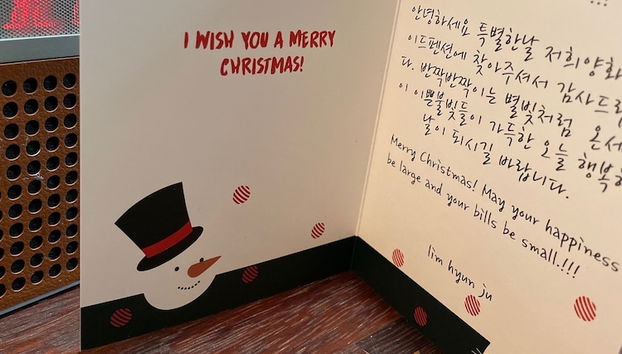 I WISH YOU A MERRY
CHRISTMAS!
안녕하세요 특별한날 저희양화
이드펜션에 찾아주셔서 감사드립
다. 반짝반짝이는 별빛처럼 온세
이 이쁜불빛들이 가득한 오늘 행복한
날이 되시길 바랍니다.
Merry Christmas! May your happiness
be large and your bills be small.!!!
lim hyun ju